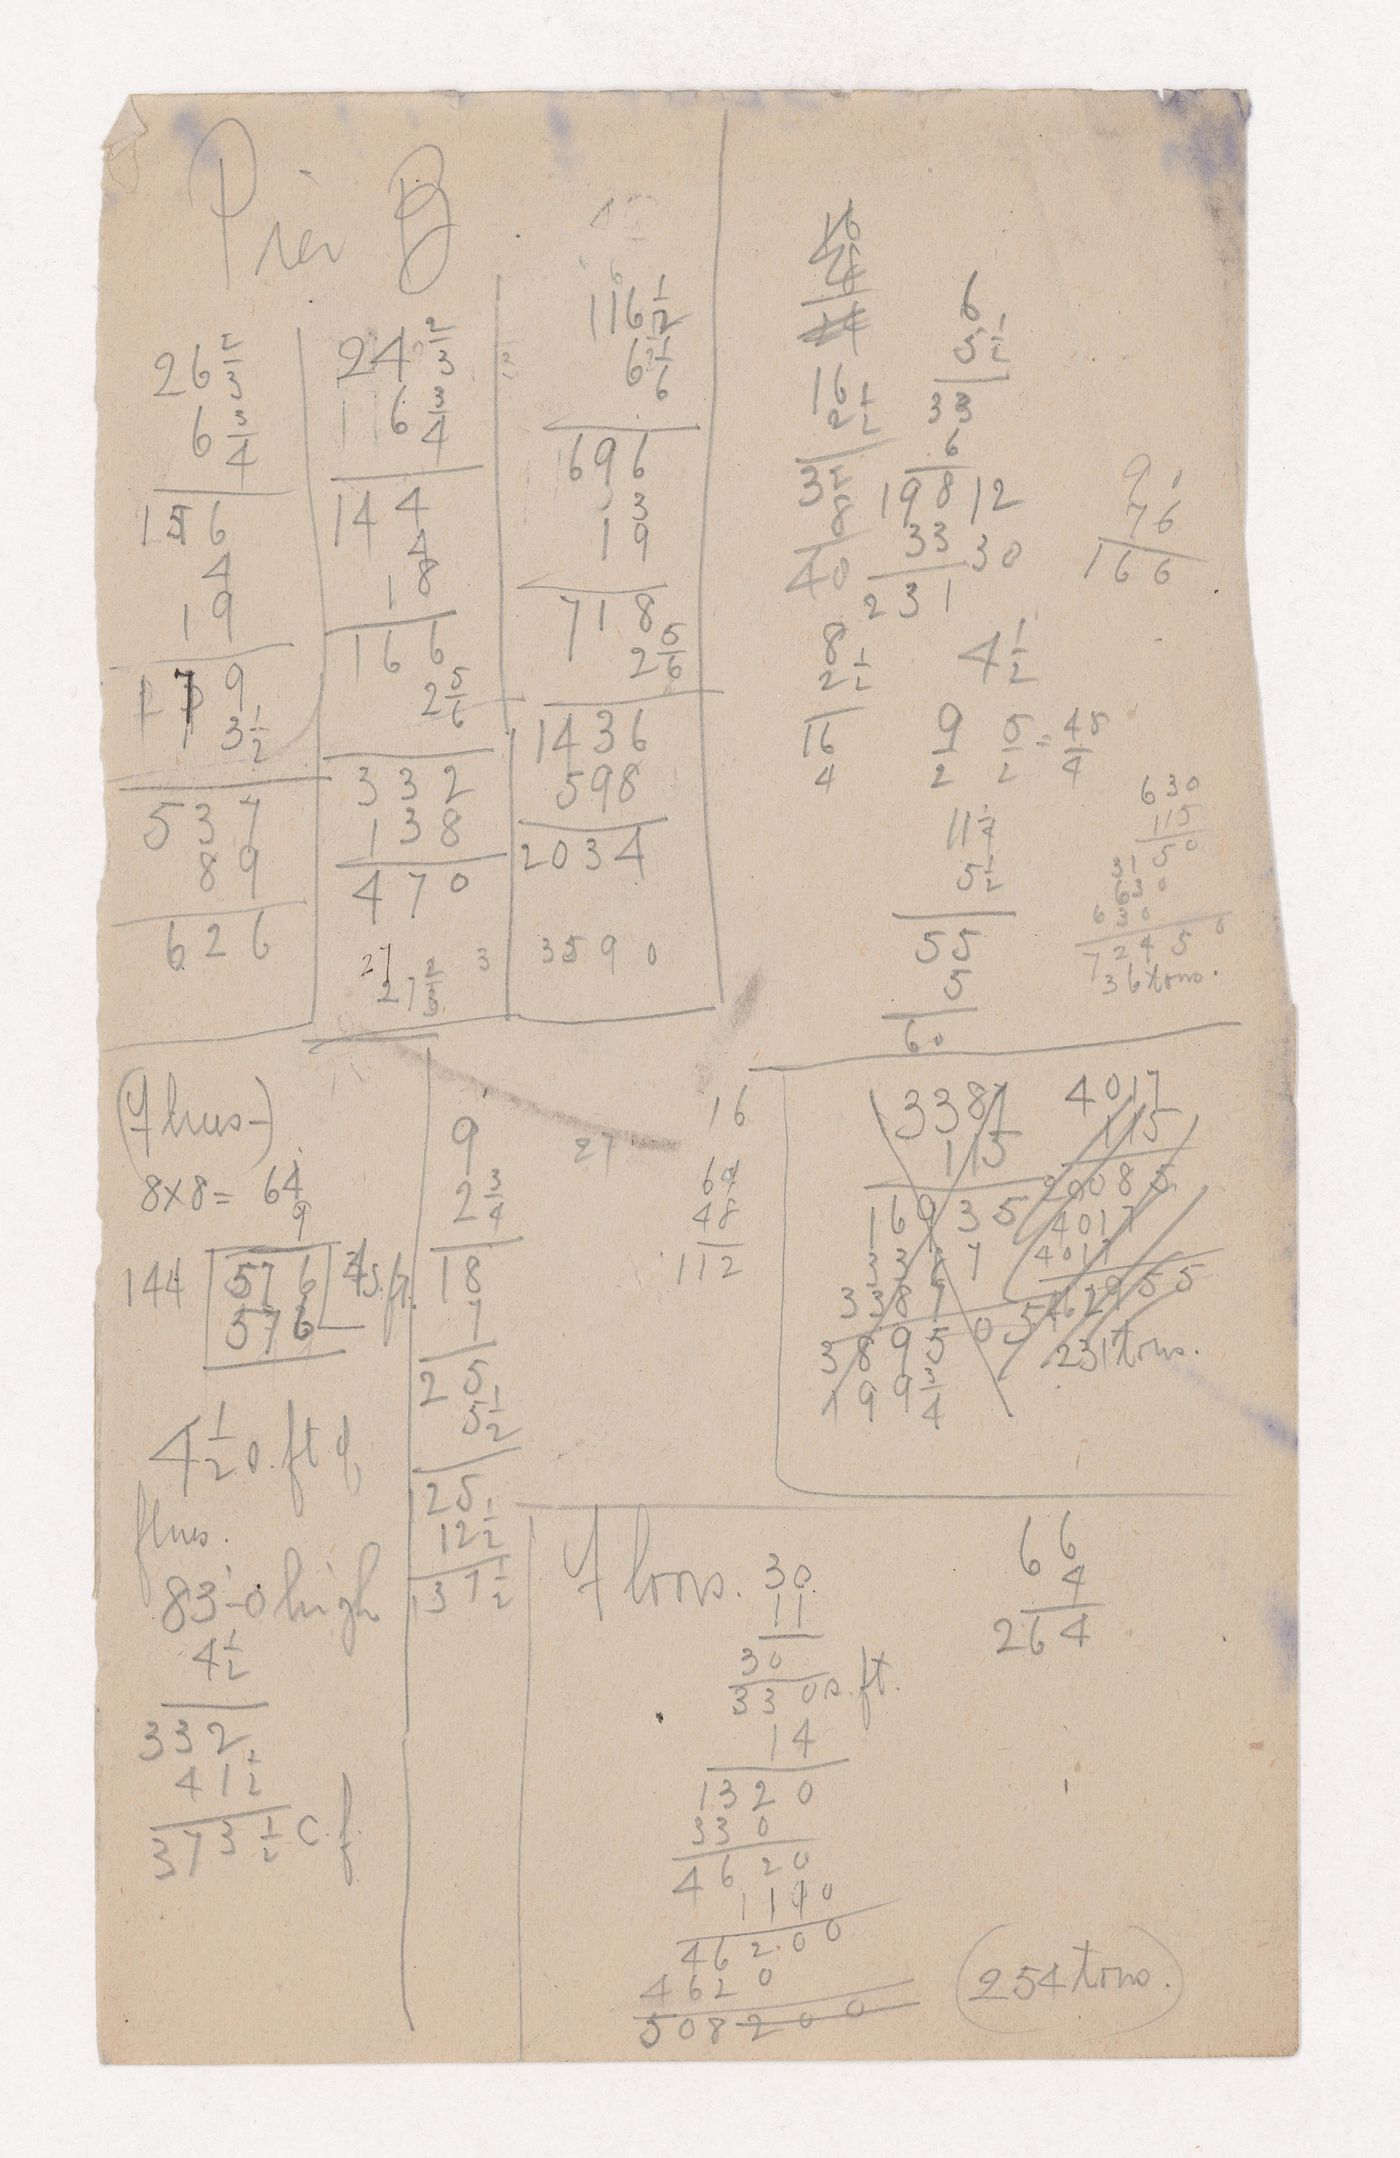 Pier B
26 2/3
6 3/4
156
4
19
179
3 1/2
537
89
626
24 2/3
116 3/4
144
4
18
166
2 5/6
332
138
470
27
27 2/3
3
116 1/2
6 1/6
696
3
19
718
2 5/6
1436
598
2034
3590
16
4
16
2 1/2
32
8
40
8
2 1/2
16
4
6
5 1/2
33
6
198 12
33 30
231
4 1/2
9/2 5/2 = 45/4
11 1/4
5 1/2
55
5
60
90
76
166
630
115
3150
630
630
72450
36 tons.
(Flues-)
8x8 = 64
9
144 576 4 s.ft.
576
4 1/2 o. ft of
flues.
83'-0 high
4 1/2
332
41 1/2
373 1/2 c.f.
9
2 3/4
18
7
25
5 1/2
125
12 1/2
137 1/2
27
16
64
48
112
3387
115
16935
3387
3387
389505
199 3/4
4017
115
20085
4017
4017
462955
231 tons.
Floors.
30
11
30
330 o. ft.
14
1320
330
4620
110
46200
4620
508200
66
4
264
(254 tons.)